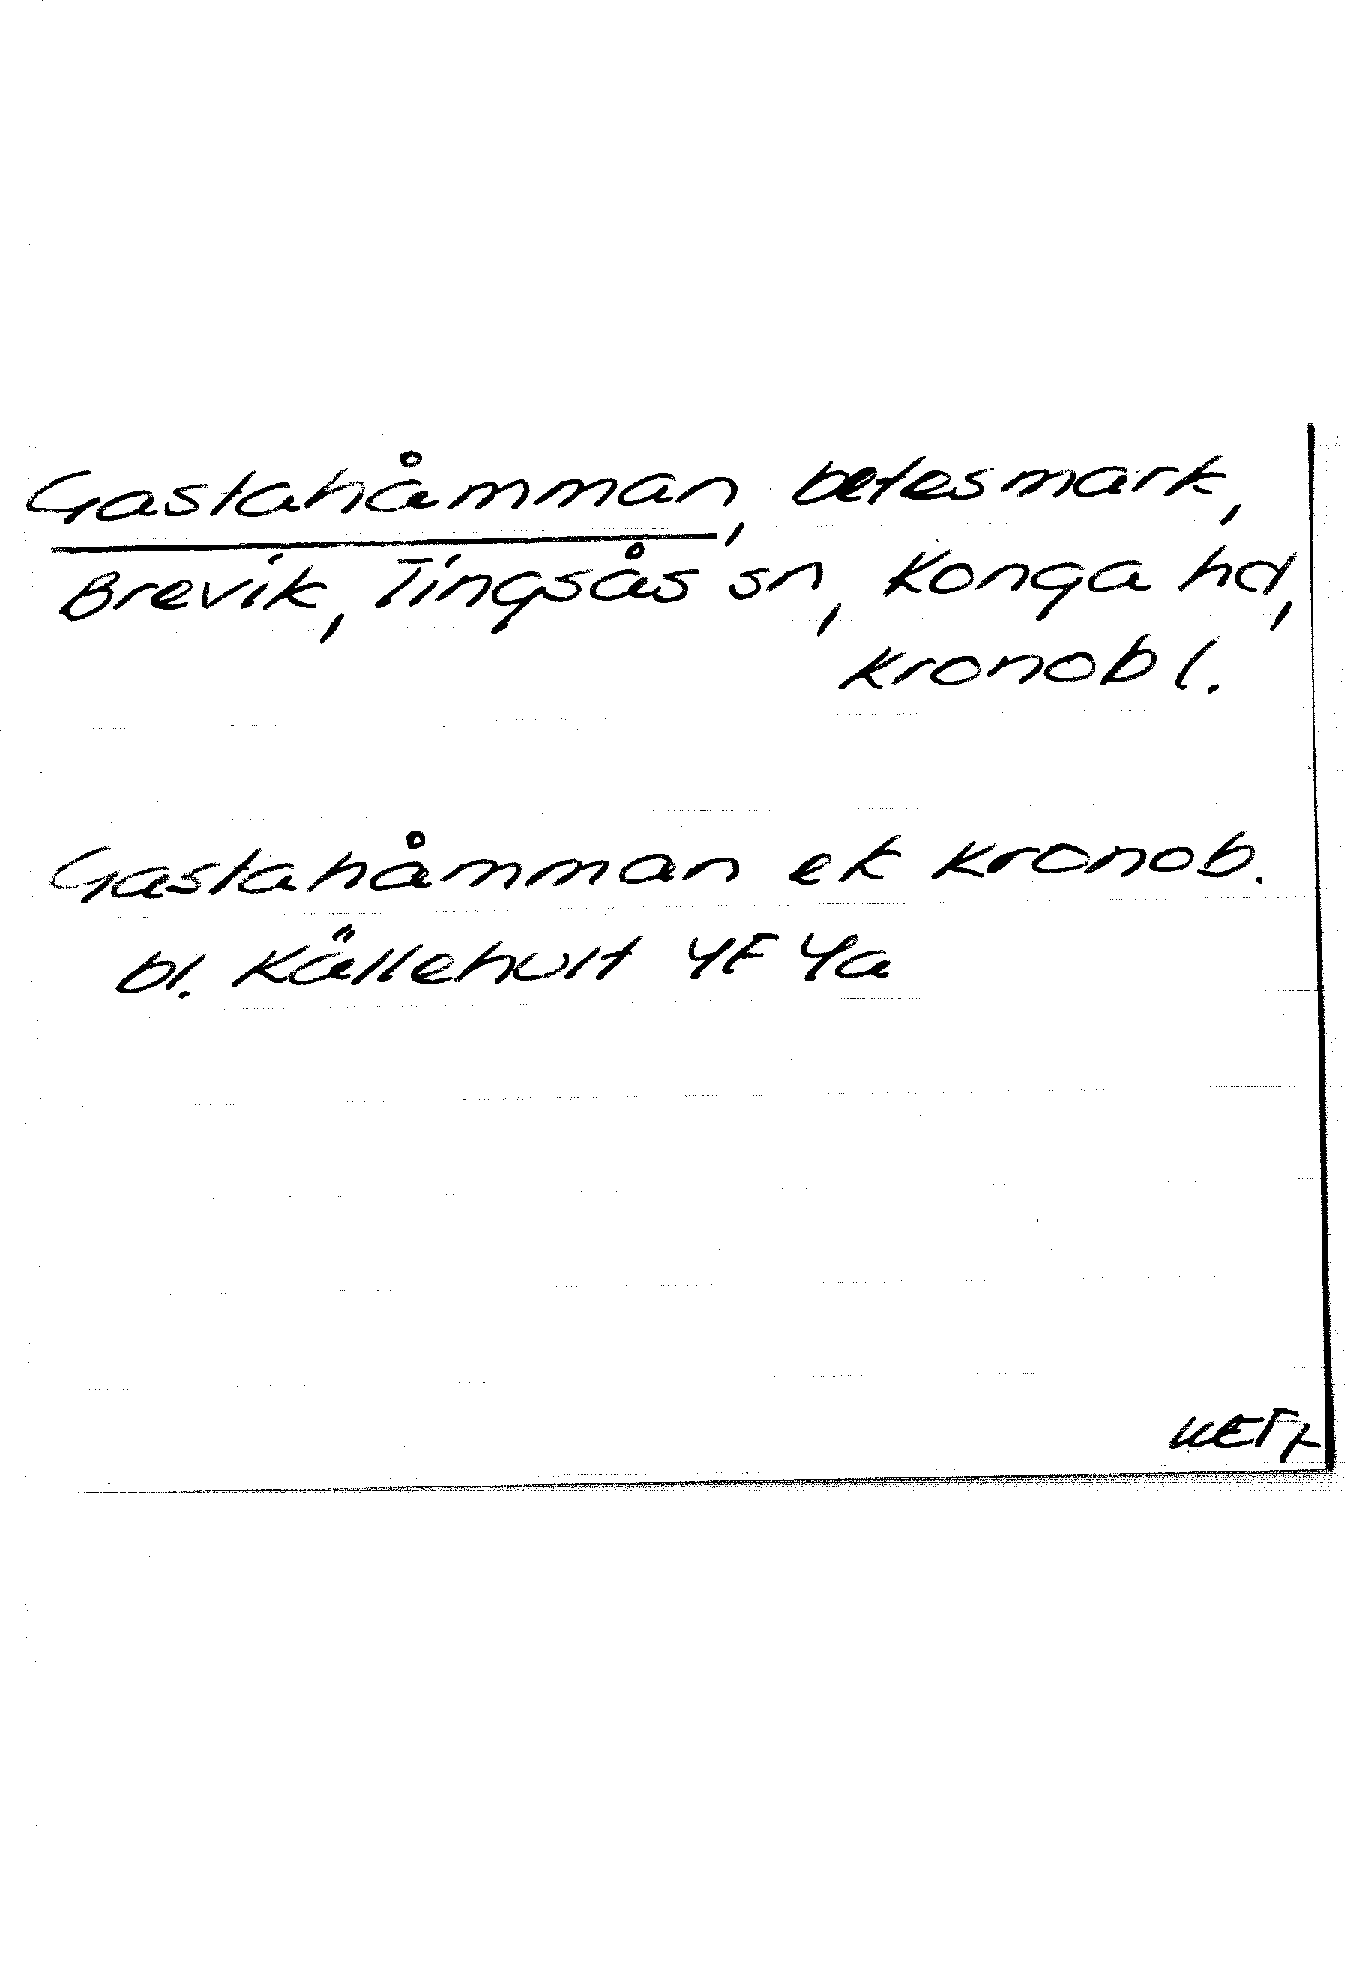 Gastahåmman, betesmark,
Brevik, Tingsås sn, Konga hd,
Kronob l.
Gastahåmman ek Kronob.
bl. Källehult 4F 4a